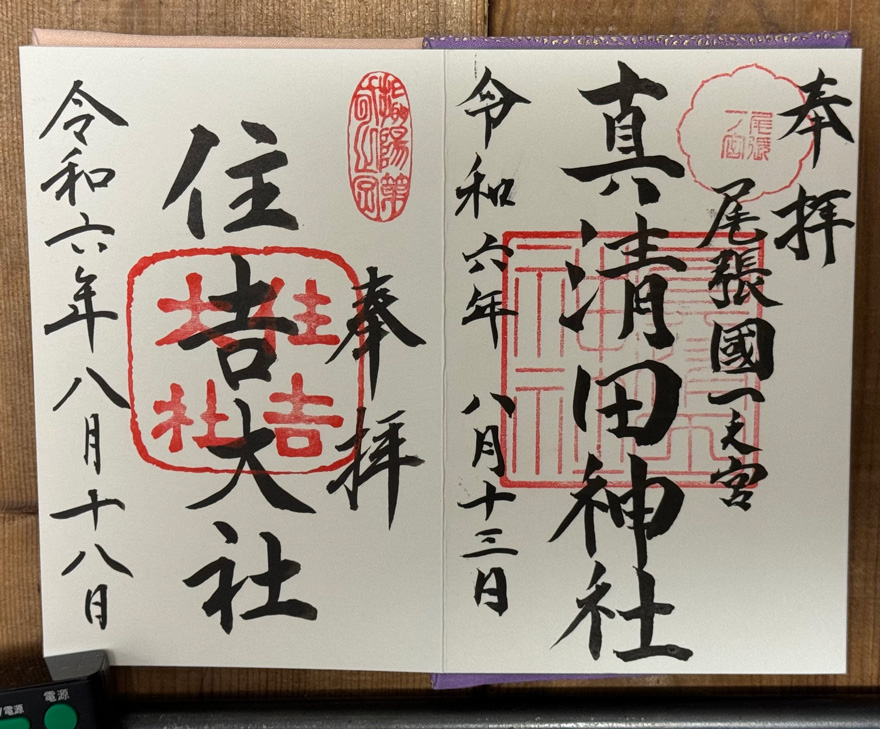 奉拝
尾張
一ノ宮
尾張國一之宮
真清田神社
令和六年 八月十三日
奉拝
住吉
大社
住吉大社
令和六年八月十八日
電源
電源